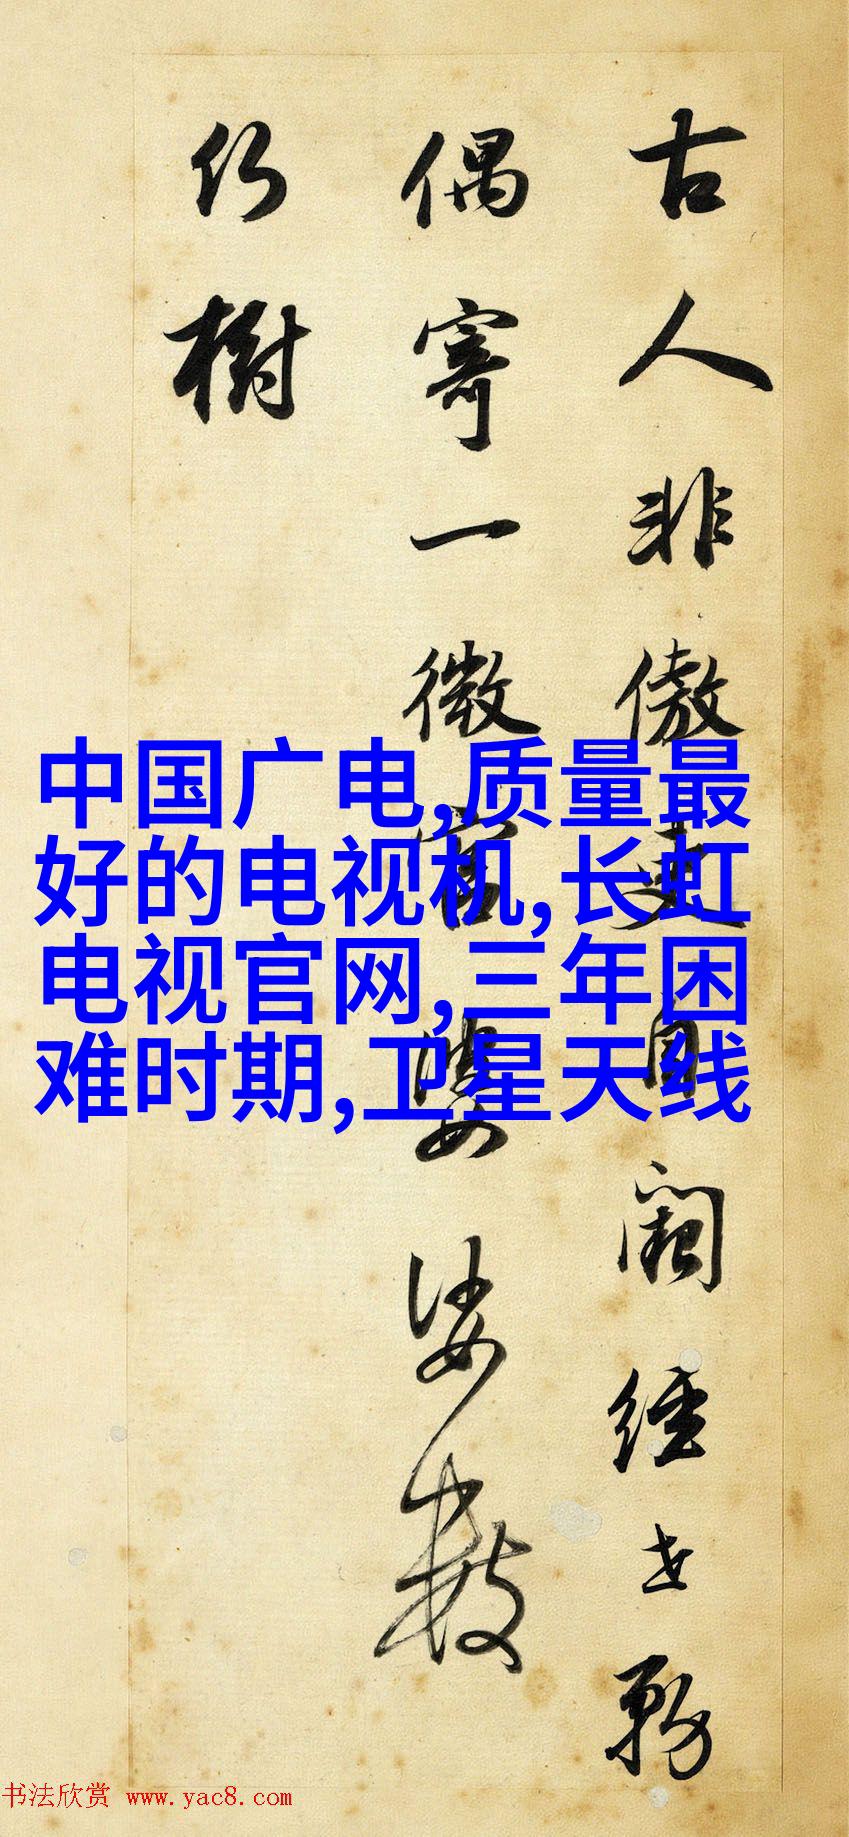 古人非傲吏自闕經世務
偶寄一微官婆娑數
行樹
中国广电,质量最
好的电视机,长虹
电视官网,三年困
难时期,卫星天线
书法欣赏 www.yac8.com